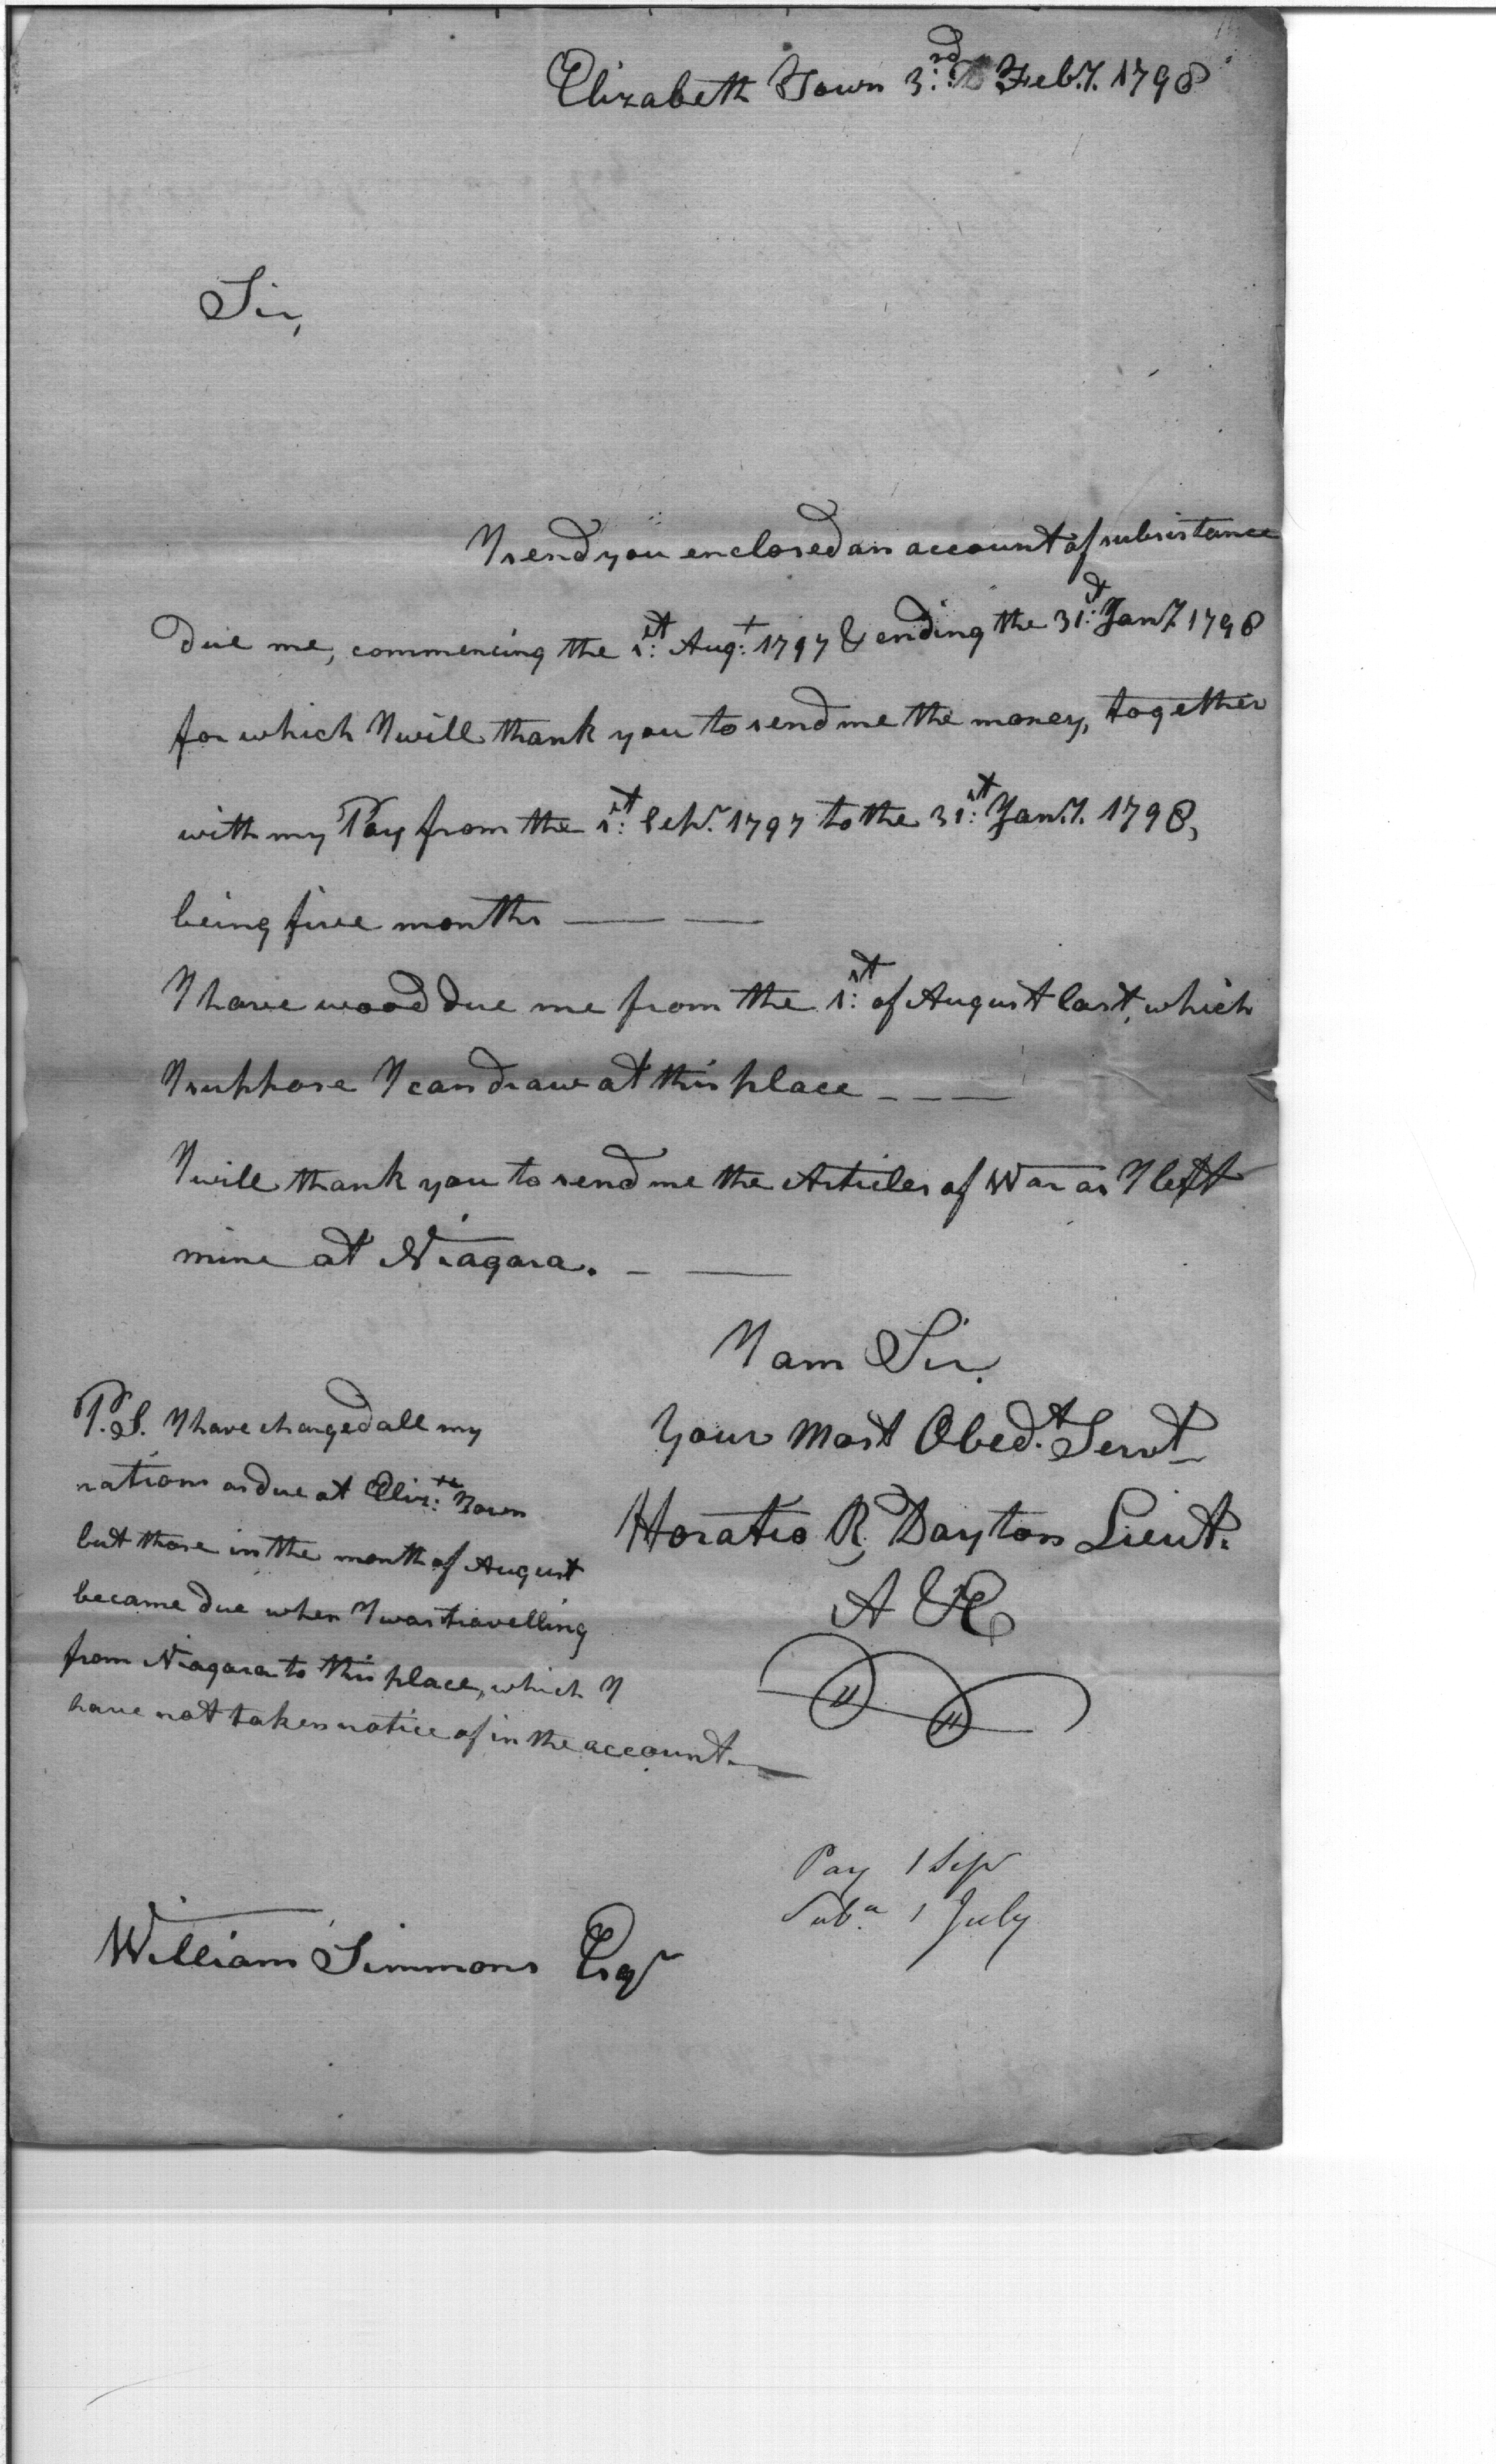 Elizabeth Town 3.rd Feb.y. 1798
Sir,
I send you enclosed an account of subsistance
due me, commencing the 1:st Aug:t 1797 & ending the 31:st Jan.y 1798
for which I will thank you to send me the money, together
with my Pay from the 1:st Sepr. 1797 to the 31:st Jan.y. 1798,
being five months — —
I have wood due me from the 1:st of August last, which
I suppose I can draw at this place - - —
I will thank you to send me the Articles of War as I left
mine at Niagara. - —
I am Sir,
Your Most Obed.t Servt
Horatio R. Dayton Lieut.
A & E
P.S. I have charged all my
rations as due at Eliz:th Town
but those in the month of August
became due when I was travelling
from Niagara to this place, which I
have not taken notice of in the account. —
Pay 1 Sepr
Sub.a 1 July
William Simmons Esqr